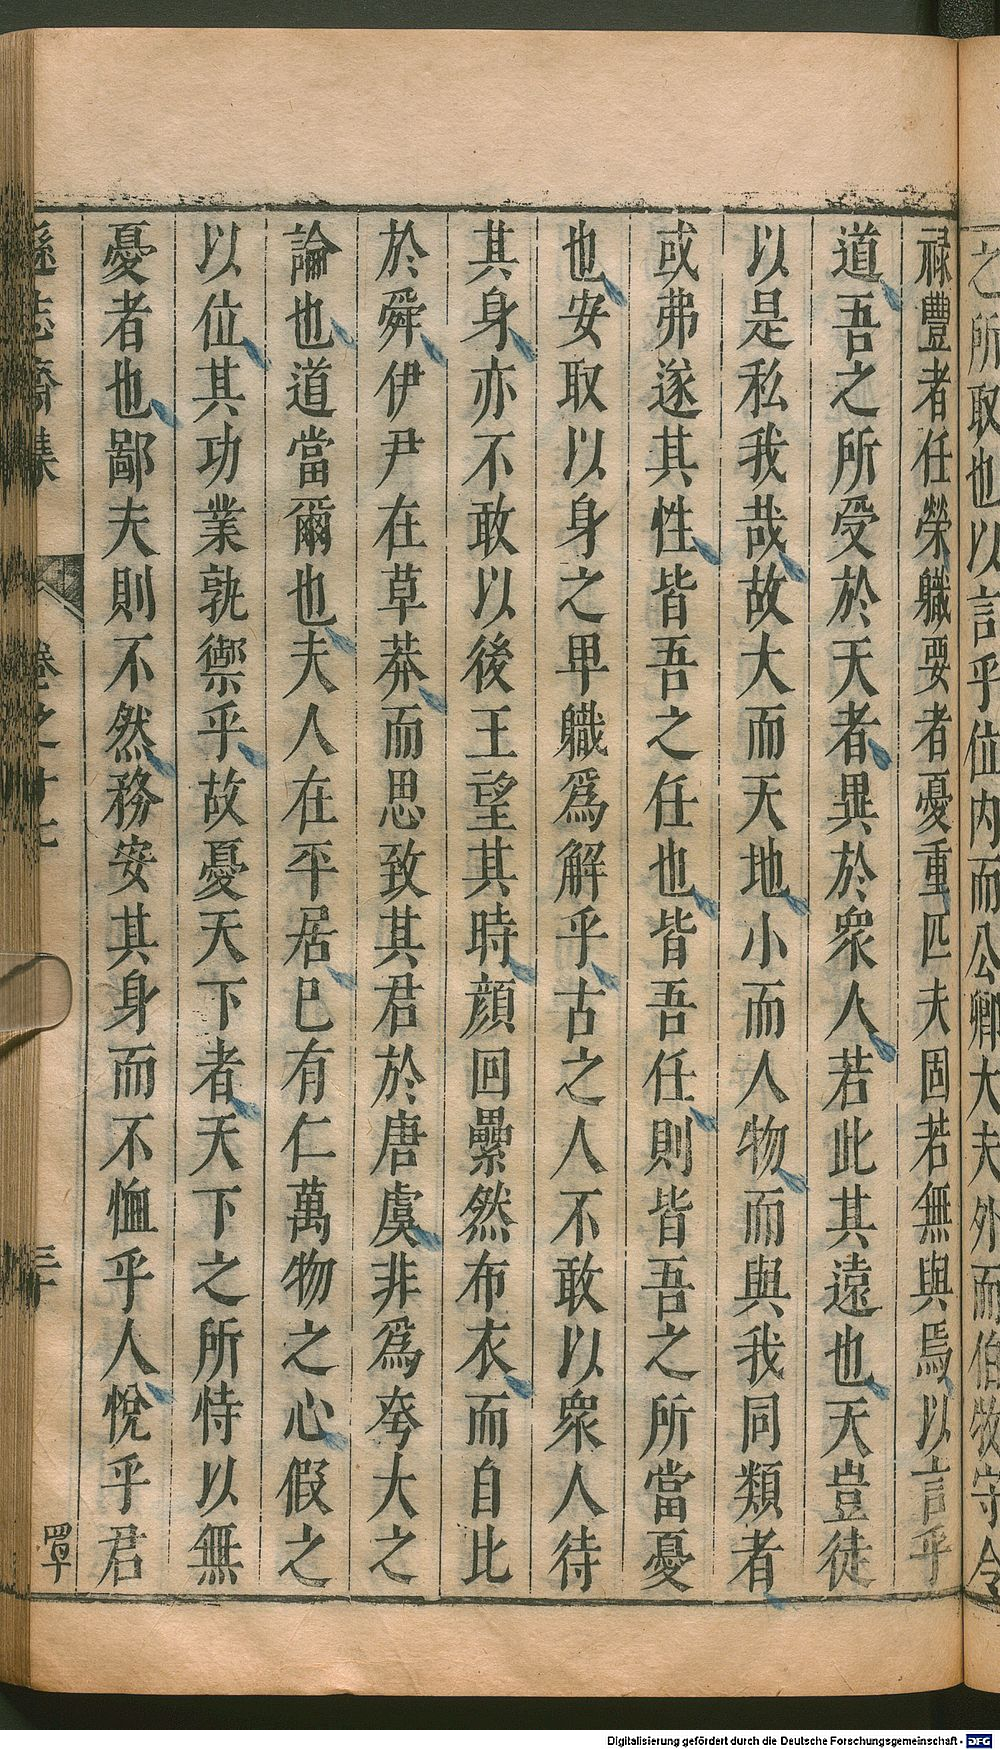 之所取也以言乎位内而公卿大夫外而伯牧守令
祿豐者任榮軄要者憂重匹夫固若無與焉以言乎
道吾之所受於天者異於衆人若此其遠也天豈徒
以是私我哉故大而天地小而人物而與我同類者
或弗遂其性皆吾之任也皆吾任則皆吾之所當憂
也安取以身之卑軄爲解乎古之人不敢以衆人待
其身亦不敢以後王望其時顔回纍然布衣而自比
於舜伊尹在草莽而思致其君於唐虞非爲夸大之
論也道當爾也夫人在平居已有仁萬物之心假之
以位其功業孰禦乎故憂天下者天下之所恃以無
憂者也鄙夫則不然務安其身而不恤乎人悅乎君
遜志齋集
卷之十七
三十
覃
Digitalisierung gefördert durch die Deutsche Forschungsgemeinschaft - DFG